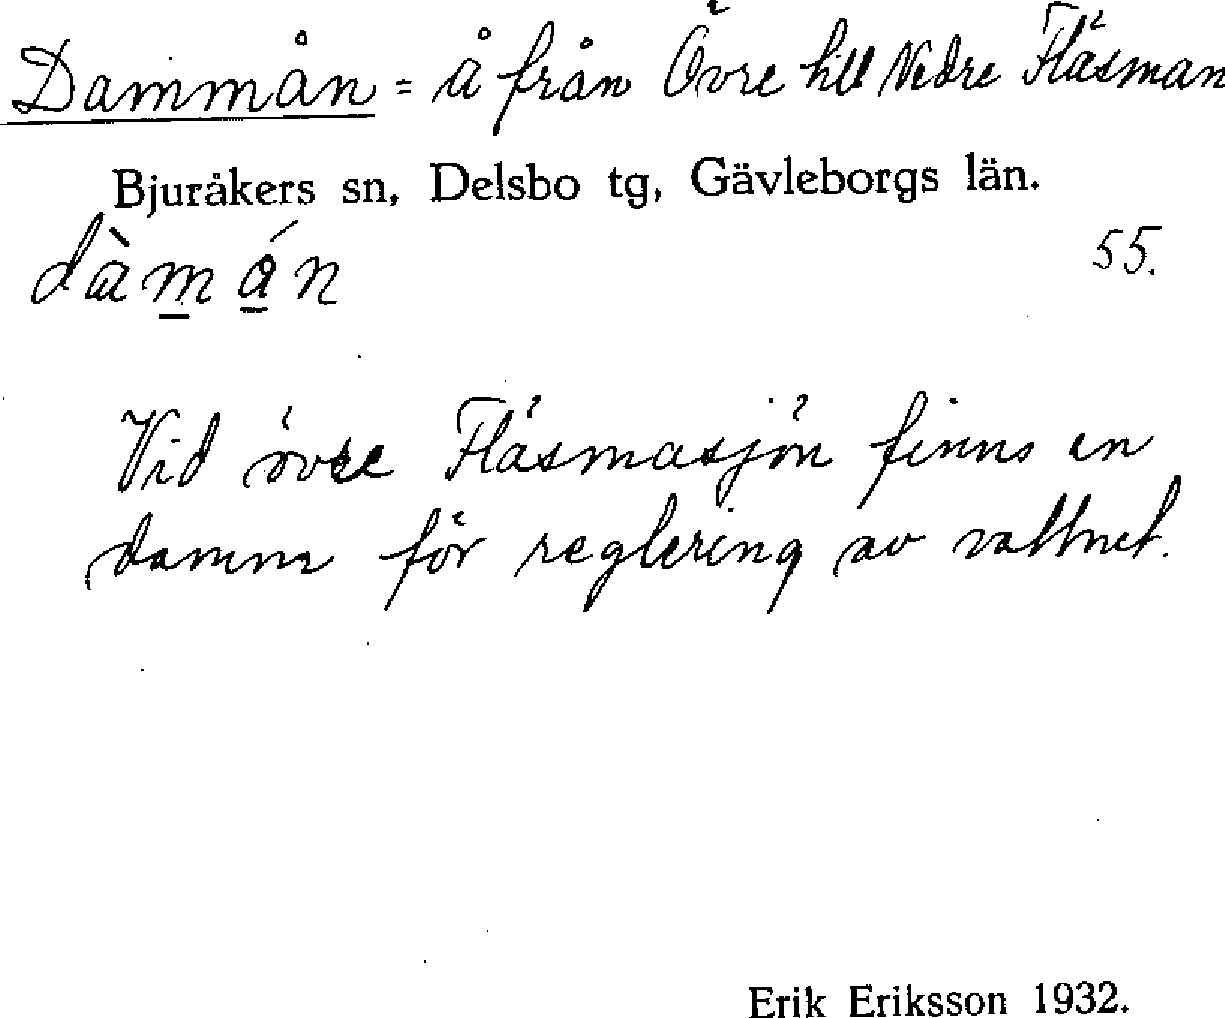 Dammån = å från Övre till Nedre Fläsman
Bjuråkers sn, Delsbo tg, Gävleborgs län.
dàmån 55.
Vid övre Fläsmasjön finns en
damm för reglering av vattnet.
Erik Eriksson 1932.